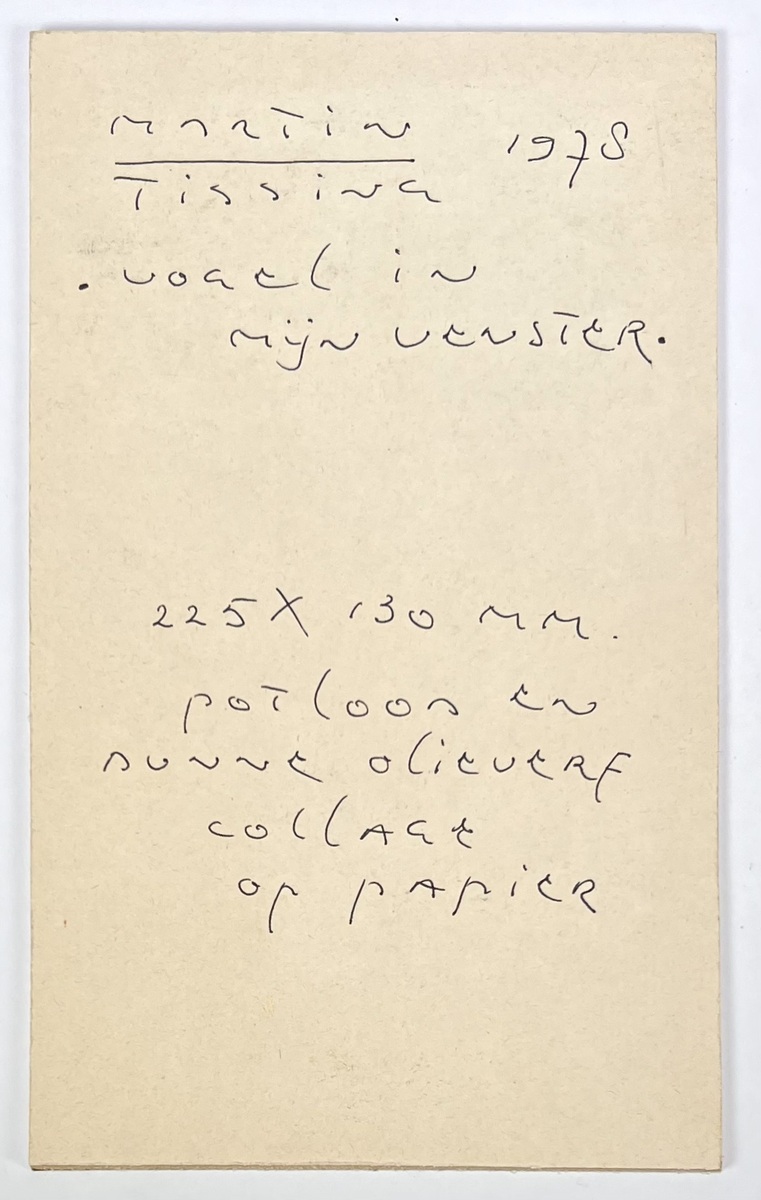 MARTIN 1978
TISSING
. VOGEL in
MijN VENSTER.
225 X 130 MM.
POTLOOD EN
DUNNE OLIEVERF
COLLAGE
OP PAPIER